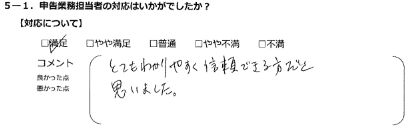 5－1．申告業務担当者の対応はいかがでしたか？
【対応について】
☑満足 □やや満足 □普通 □やや不満 □不満
コメント
良かった点
悪かった点
とてもわかりやすく信頼できる方だと
思いました。